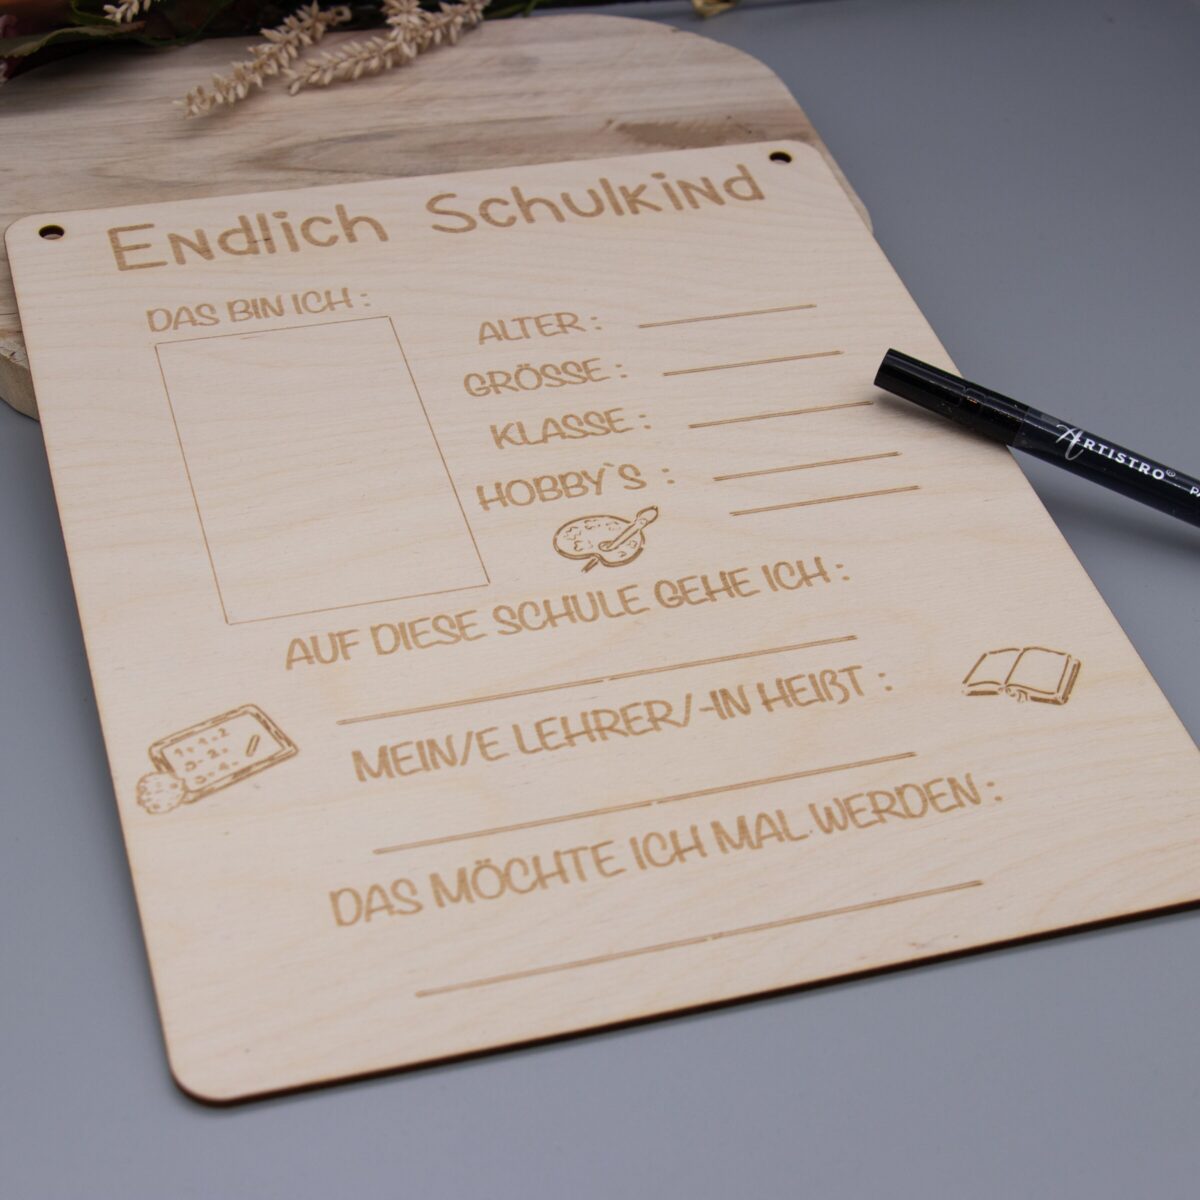 Endlich Schulkind
DAS BIN ICH :
ALTER :
GRÖSSE :
KLASSE :
HOBBY`S :
AUF DIESE SCHULE GEHE ICH :
MEIN/E LEHRER/-IN HEIßT :
DAS MÖCHTE ICH MAL WERDEN :
ARTISTRO®